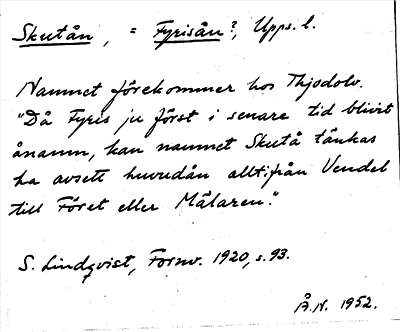 Skutån, = Fyrisån?, Upps. l.
Namnet förekommer hos Thjodolv.
"Då Fyris ju först i senare tid blivit
ånamn, kan namnet Skutå tänkas
ha avsett huvudån alltifrån Vendel
till Föret eller Mälaren."
S. Lindqvist, Fornv. 1920, s. 93.
Å.N. 1952.